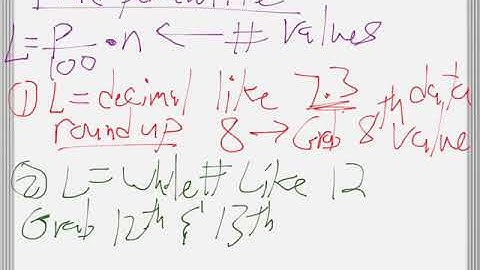 L = P/100 · n ← # values
① L = decimal like 7.3
round up 8 → Grab 8th data value
② L = Whole # Like 12
Grab 12th & 13th